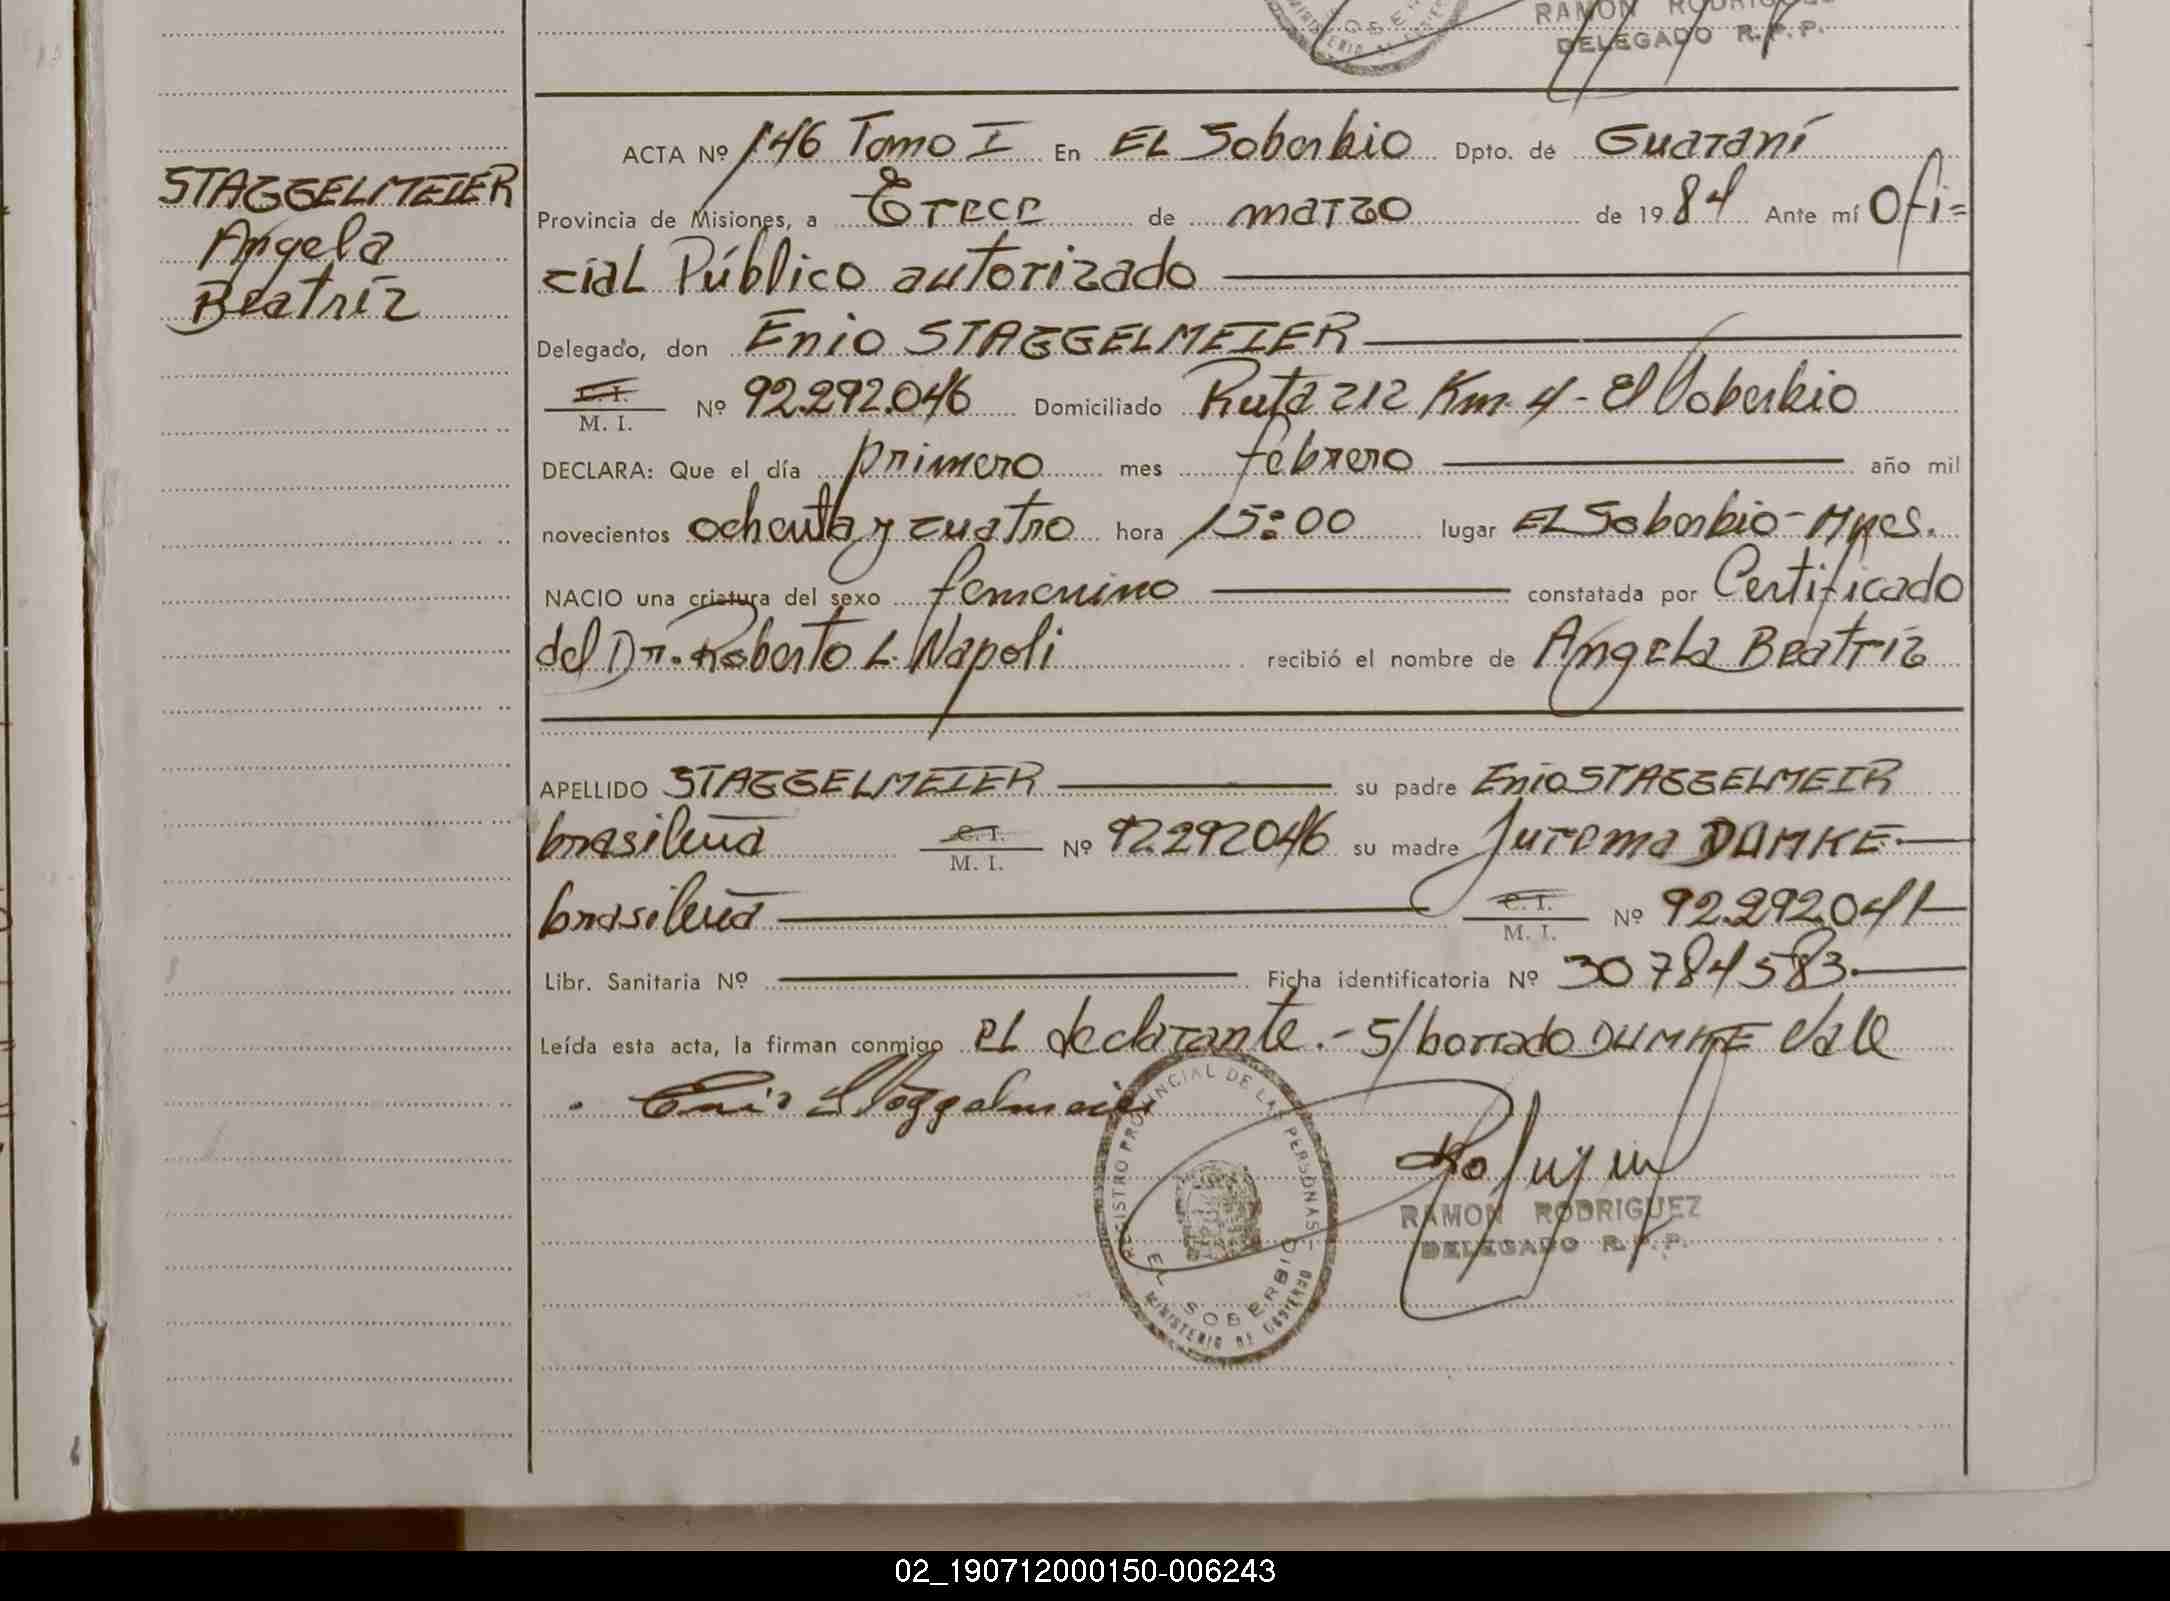 RAMON RODRIGUEZ
DELEGADO R.P.P.
STAGGELMEIER
Angela
Beatríz
ACTA Nº 146 Tomo I En EL Soberbio Dpto. de Guaraní
Provincia de Misiones, a Trece de marzo de 1984 Ante mí Ofi=
cial Público autorizado
Delegado, don Enio STAGGELMEIER
C. I.
M. I. Nº 92.292.046 Domiciliado Ruta 212 Km. 4 - El Soberbio
DECLARA: Que el día primero mes febrero año mil
novecientos ochenta y cuatro hora 15:00 lugar EL Soberbio - Mnes.
NACIO una criatura del sexo femenino constatada por Certificado
del Dr. Roberto L. Napoli recibió el nombre de Angela Beatríz
APELLIDO STAGGELMEIER su padre Enio STAGGELMEIR
brasileña C. I. M. I. Nº 92.292046 su madre Jurema DUMKE
brasileña C. I. M. I. Nº 92.292.041
Libr. Sanitaria Nº Ficha identificatoria Nº 30784583
Leída esta acta, la firman conmigo el declarante.- S/borrado DUMKE Vale
Enio Staggelmeier
REGISTRO PROVINCIAL DE LAS PERSONAS
EL SOBERBIO
MINISTERIO DE GOBIERNO
RAMON RODRIGUEZ
DELEGADO R.P.P.
02_190712000150-006243